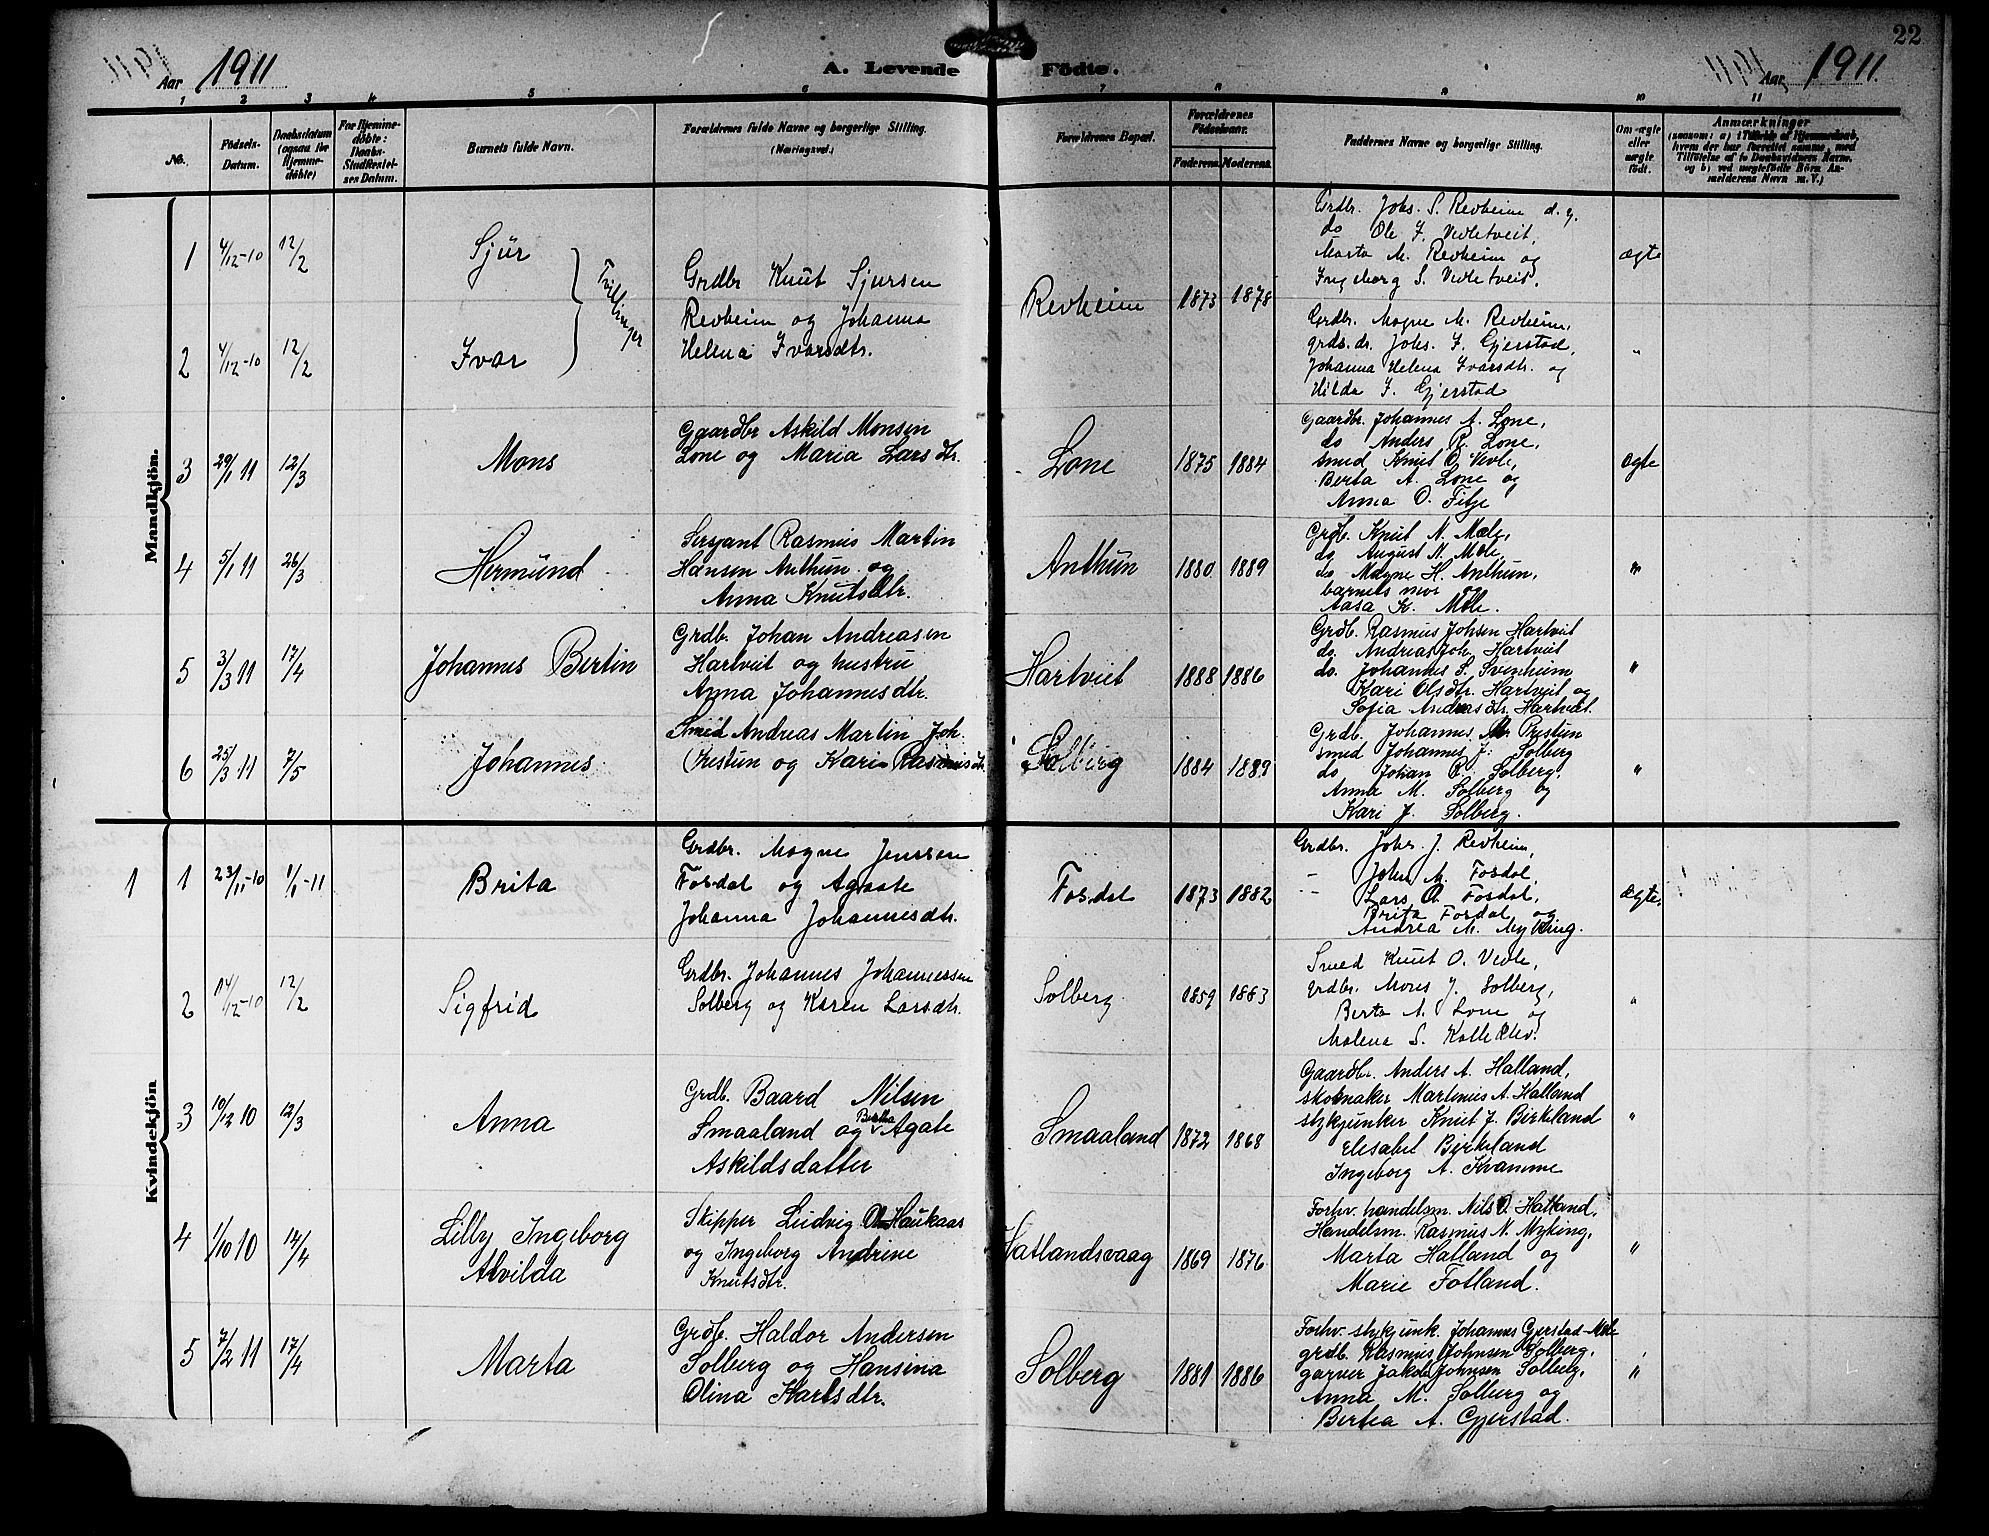 22
Aar 1911
A. Levende Födte.
Aar 1911
1 2 3 4 5 6 7 8 9 10 11
No.
Födsels-Datum.
Daabsdatum (ogsaa for Hjemmedöbte)
For Hjemmedöbte: Daabs-Stadfæstelses Datum.
Barnets fulde Navn.
Forældrenes fulde Navne og borgerlige Stilling. (Næringsvei.)
Forældrenes Bopæl.
Forældrenes Födselsaar.
Faderens. Moderens.
Faddernes Navne og borgerlige Stilling.
Om ægte eller uægte födt.
Anmærkninger
(saasom: a) i Tilfælde af Hjemmedaab, hvem der har forrettet samme, med Tilföielse af to Daabsvidners Navne, og b) ved uægtefödte Börn Anmelderens Navn m. V.)
Mandkjön.
1 4/12-10 12/2 Sjur
Tvillinger
Grdbr Knut Sjursen
Revheim og Johanna
Helena Ivarsdtr.
Revheim 1873 1878
Grdbr. Johs. S. Revheim d. y.
do Ole J. Vedletveit,
Marta M. Revheim og
Ingeborg S. Vedletveit.
ægte
2 4/12-10 12/2 Ivar
Grdbr. Mogne M. Revheim,
grds.dr. Johs. J. Gjerstad,
Johanna Helena Ivarsdtr. og
Hilda J. Gjerstad
"
3 29/1 11 12/3 Mons
Gaardbr Askild Monsen
Lone og Maria Larsdtr.
Lone 1875 1884
Gaardbr. Johannes A. Lone,
do Anders R. Lone,
smed Knut O. Vedle,
Berta A. Lone og
Anna O. Fitje
ægte
4 5/1 11 26/3 Hermund
Sersjant Rasmus Martin
Hansen Anthun og
Anna Knutsdtr.
Anthun 1880 1889
Grdb. Knut N. Mæle,
do August N. Mæle,
do Magne H. Anthun,
barnets mor og
Aasa K. Mæle.
"
5 3/3 11 17/4 Johannes Bertin
Grdb. Johan Andreasen
Hartveit og hustru
Anna Johannesdtr.
Hartveit 1888 1886
Grdb. Rasmus Johsen Hartveit
do. Andreas Joh. Hartveit
do. Johannes S. Svenheim
Kari Olsdtr. Hartveit og
Sofia Andreasdtr. Hartveit.
"
6 25/3 11 7/5 Johannes
Smed Andreas Martin Joh.
Prestun og Kari Rasmusdtr.
Solberg 1884 1889
Grdb. Johannes Prestun
smed Johannes J. Solberg
do Johan Solberg,
Anna M. Solberg og
Kari J. Solberg.
"
Kvindekjön
1 1 23/11-10 1/1-11 Brita
Grdbr. Mogne Jenssen
Fosdal og Agaate
Johanna Johannesdtr.
Fosdal 1873 1882
Grdbr. Johs. J. Revheim,
- John M. Fosdal,
- Lars O. Fosdal,
Brita Fosdal og
Andrea M. Myking.
Ægte.
2 14/12-10 12/2 Sigfrid
Grdbr. Johannes Johannessen
Solberg og Karen Larsdtr.
Solberg 1859 1863
Smed Knut O. Vedle,
Grdbr. Mons J. Solberg,
Berta A. Lone og
Malena S. Kalleklev.
"
3 10/12 10 12/3 Anna
Grdb. Baard Nilsen
Smaaland og Bertha Agate
Askildsdatter
Smaaland 1872 1868
Gaardbr. Anders A. Halland,
skomaker Martinus A. Halland
stykjunker Knut J. Birkeland
Elisabet Birkeland
Ingeborg A. Kvamme
"
4 1/10 10 17/4 Lilly Ingeborg
Alvilda
Skipper Ludvig Haukaas
og Ingeborg Andrine
Knutsdtr.
Hatlandsvaag 1869 1876
Forhv. handelsm. Nils O. Hatland,
Handelsm. Rasmus N. Myking,
Marta Halland og
Marie Fotland.
"
5 7/2 11 17/4 Marta
Grdb. Haldor Andersen
Solberg og Hansina
Olina Karlsdtr.
Solberg 1881 1886
Forhv. stykjunk. Johannes Gjerstad-Mæle
grdb. Rasmus Johnsen Solberg,
garver Jakob Johnsen Solberg,
Anna M. Solberg og
Bertea A. Gjerstad.
"